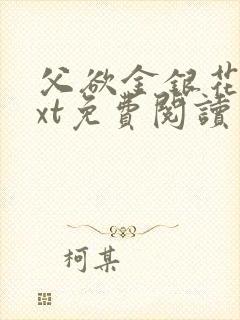 父欲金銀花
xt免費閱讀
柯某